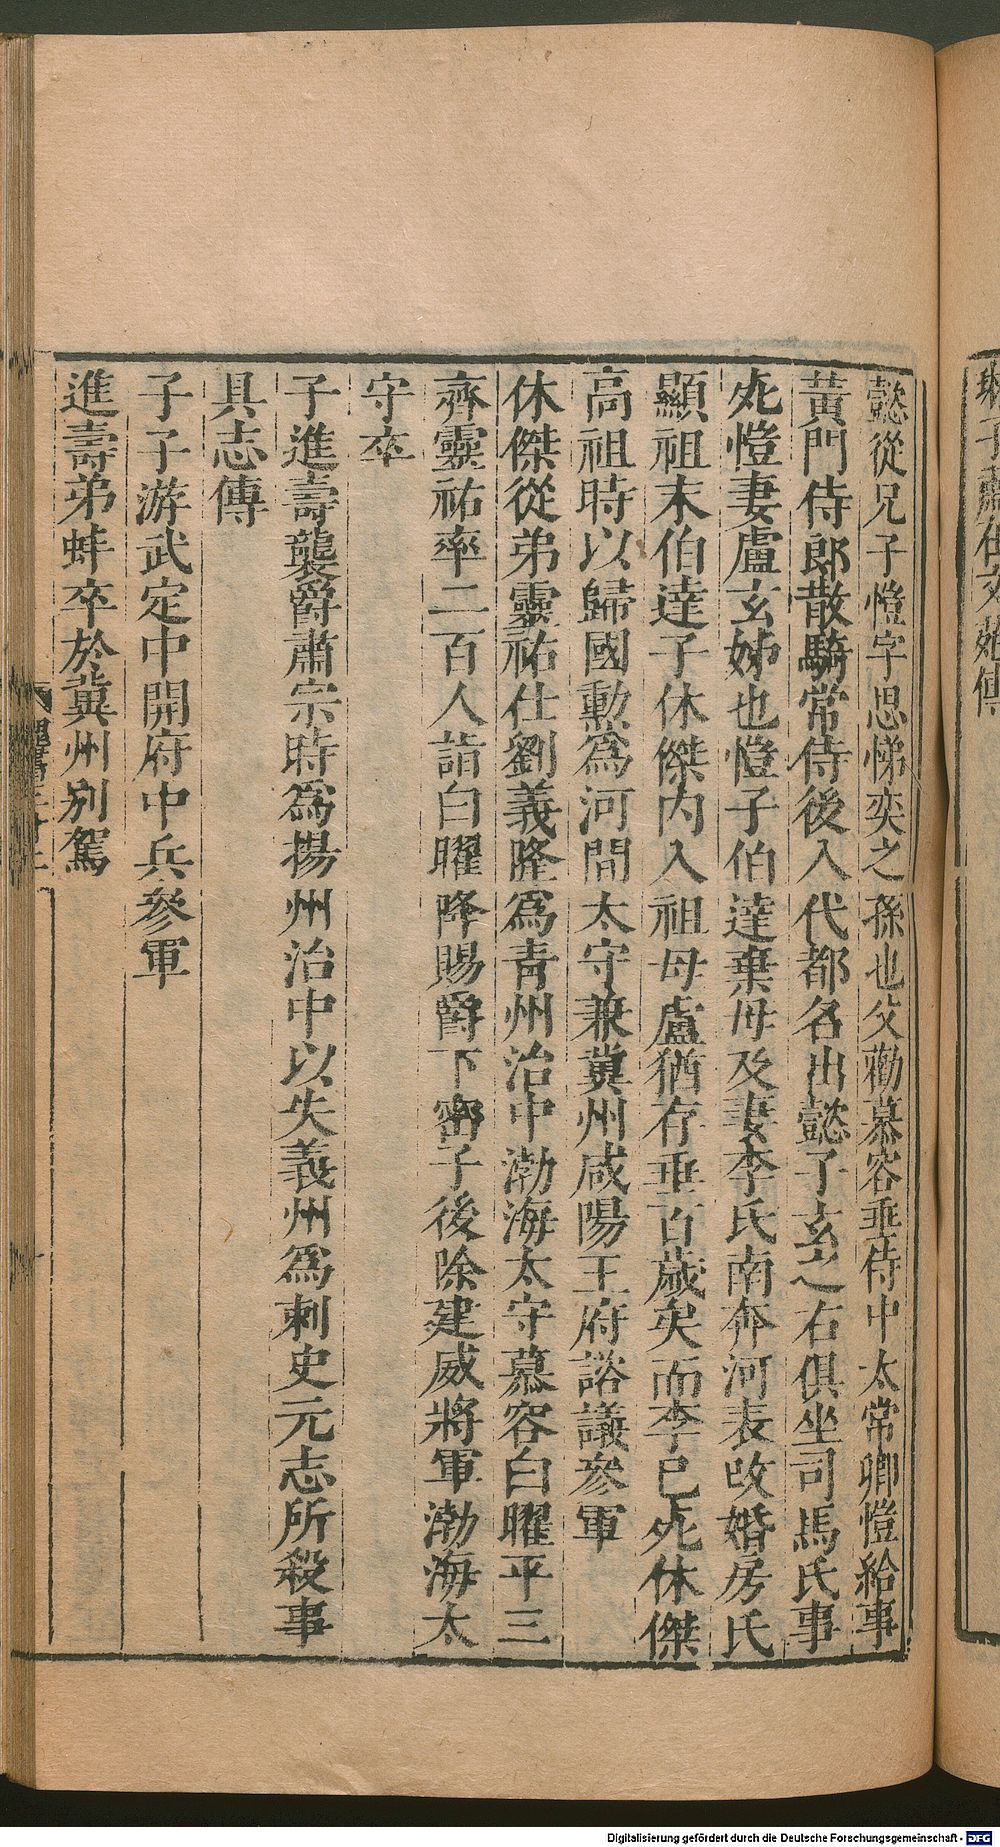 懿從兄子愷字思悌奕之孫也父勸慕容垂侍中太常卿愷給事
黃門侍郎散騎常侍後入代都名出懿子玄之右俱坐司馬氏事
死愷妻盧玄姊也愷子伯達棄母及妻李氏南奔河表改婚房氏
顯祖末伯達子休傑內入祖母盧猶存垂百歲矣而李已死休傑
高祖時以歸國勳爲河間太守兼冀州咸陽王府諮議參軍
休傑從弟靈祐仕劉義隆爲青州治中渤海太守慕容白曜平三
齊靈祐率二百人詣白曜降賜爵下密子後除建威將軍渤海太
守卒
子進壽襲爵肅宗時爲揚州治中以失義州爲刺史元志所殺事
具志傳
子子游武定中開府中兵參軍
進壽弟蚌卒於冀州別駕
Digitalisierung gefördert durch die Deutsche Forschungsgemeinschaft - DFG